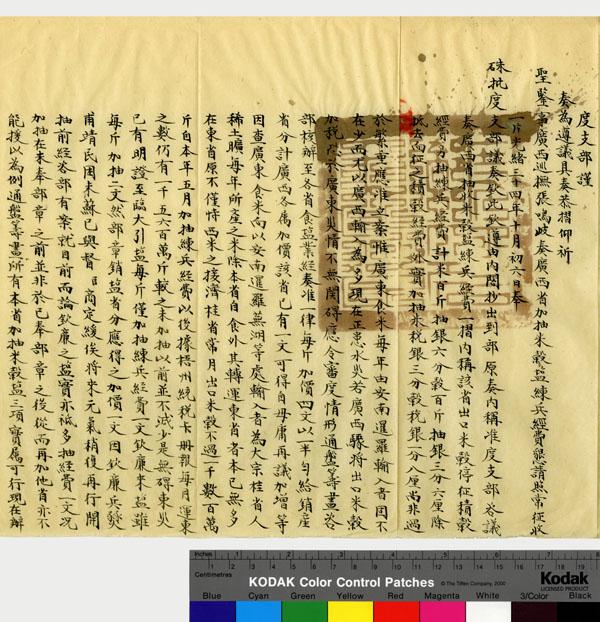 度支部謹
奏為遵議具奏恭摺仰祈
聖鑒事廣西巡撫張鳴岐奏廣西省加抽米穀鹽練兵經費懇請照常征收
一片光緒三十四年十月初六日奉
硃批度支部議奏欽此欽遵由內閣抄出到部原奏內稱准度支部咨議
奏廣西省抽收米穀鹽練兵經費一摺內稱該省出口米穀停征積穀
經費另抽練兵經費計米百斤抽銀六分穀百斤抽銀三分六厘除
抵去向征之積穀經費外實加抽米稅銀三分穀稅銀一分八厘尚非過
於繁重應准立案惟廣東食米每年由安南暹羅輸入者固不
在少而大以廣西輸入為多現在正患水災若廣西驟將出口米穀
加抽於廣東災情不無關碍應令審度情形通盤籌畫咨
部核辦至各省食鹽業經奏准一律每斤加價四文以一半勻給銷產
省分計廣西各屬加價該省已有一文可得自毋庸再議加增等
因查廣東食米向以安南暹羅蕪湖等處輸入者為大宗桂省人
稀土曠每年所產之米除本省自食外其轉運東省者本已無多
在東省原不僅恃西米之接濟桂省常月出口米穀不過一千數百萬
斤自本年五月加抽練兵經費以後據梧州統稅卡冊報每月運東
之數仍有一千五六百萬斤較之未加抽以前並不減少是無碍東災
已有明證至臨大引鹽每斤僅加抽練兵經費一文欽廉來鹽雖
每斤加抽二文然部章銷鹽省分應得之加價一文因欽廉兵燹
甫靖民困未蘇已與督臣商定緩俟將來元氣稍復再行開
抽前經咨部有案就目前而論欽廉之鹽實亦祗多抽經費一文況
加抽在未奉部章之前並非於已奉部章之後從而再加他省亦不
能援以為例通盤籌畫所有本省加抽米穀鹽三項實屬可行現在辦
Inches 1 2 3 4 5 6 7 8
Centimetres 1 2 3 4 5 6 7 8 9 10 11 12 13 14 15 16 17 18 19
KODAK Color Control Patches © The Tiffen Company, 2000
Kodak
LICENSED PRODUCT
Blue Cyan Green Yellow Red Magenta White 3/Color Black